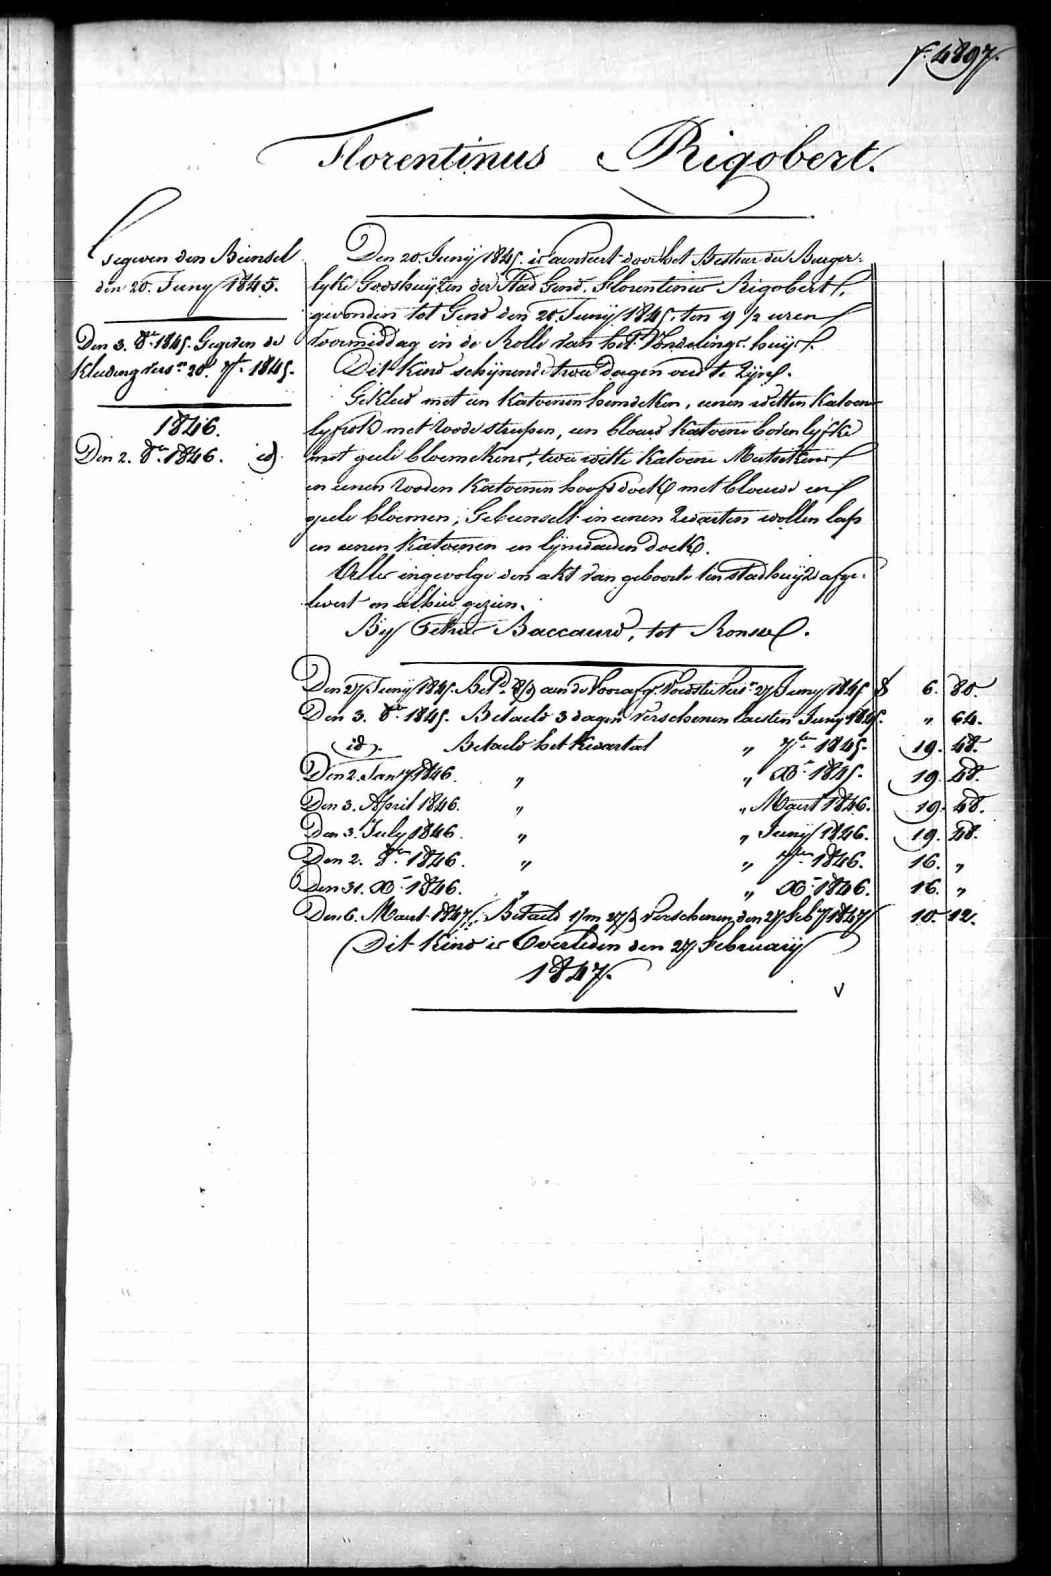 f. 4897.
Florentinus Rigobert.
Gegeven den Bunsel
den 20. Juny 1845.
Den 3. 8er 1845. Gegeven de
kleeding vers. 20. 7er 1845.
1846.
Den 2. 8er 1846. id.
Den 20. Junij 1845. is aenveert door het Bestuer der Burger-
lyke Godshuijzen der Stad Gend, Florentinus Rigobert,
gevonden tot Gend den 20. Junij 1845. ten 9 1/2 uren
voormiddag in de Rolle van het Vondelings-huijs.
Dit kind schijnende twee dagen oud te zijn.
Gekleed met een katoenen hemdeken, eenen witten katoenen
lyfrok met roode streepen, een blauw katoene bovenlyfke
met geele bloemekens, twee witte katoene Mutsekens
en eenen rooden katoenen hoofddoek met blauwe en
geele bloemen; Gebunselt in eenen zwarten wollen lap
en eenen katoenen en lijnwaeden doek.
Alles ingevolge den akt van geboorte ten stadhuijze afge-
levert en alhier gezien.
Bij Petrus Baccauw, tot Ronse.
Den 27. Junij 1845. Betd. aen de Voorafg. Voedster vers. 27 Juny 1845 8 6. 80.
Den 3. 8er 1845. Betaeld 3 dagen verschenen laesten Juny 1845. " 64.
id. Betaeld het kwartael " 7er 1845. 19. 48.
Den 2. Jany 1846. " " Xr 1845. 19. 48.
Den 3. April 1846. " " Maert 1846. 19. 48.
Den 3. July 1846. " " Junij 1846. 19. 48.
Den 2. 8er 1846. " " 7er 1846. 16. "
Den 31. Xr 1846. " " Xr 1846. 16. "
Den 6. Maert 1847. Betaeld 1/m 27/d verschenen den 27 Feby 1847 10. 12.
Dit kind is Overleden den 27 february
1847.
V